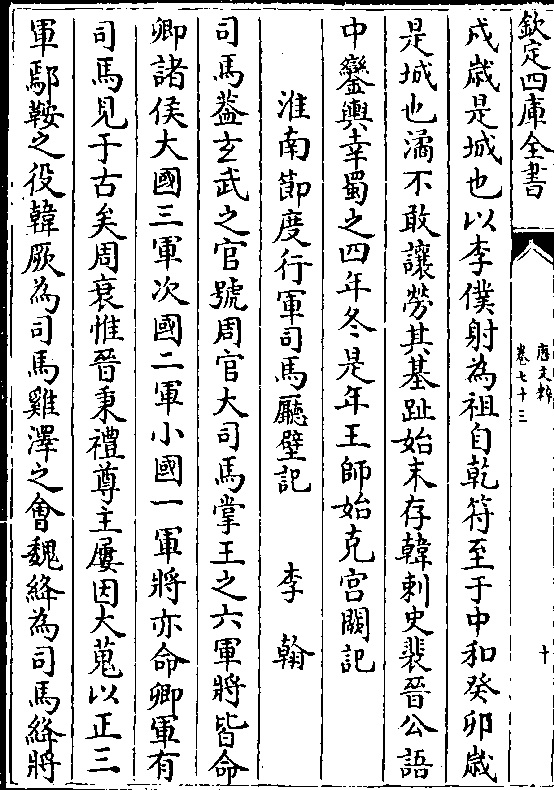 欽定四庫全書
唐文粹
卷七十三
十
戍歲是城也以李僕射為祖自乾符至于中和癸卯歲
是城也潏不敢讓勞其基趾始末存韓刺史裴晉公語
中鑾輿幸蜀之四年冬是年王師始克宮闕記
淮南節度行軍司馬廳壁記 李翰
司馬葢玄武之官號周官大司馬掌王之六軍將皆命
卿諸侯大國三軍次國二軍小國一軍將亦命卿軍有
司馬見于古矣周衰惟晉秉禮尊主屢因大蒐以正三
軍鄢鞍之役韓厥為司馬雞澤之會魏絳為司馬絳將